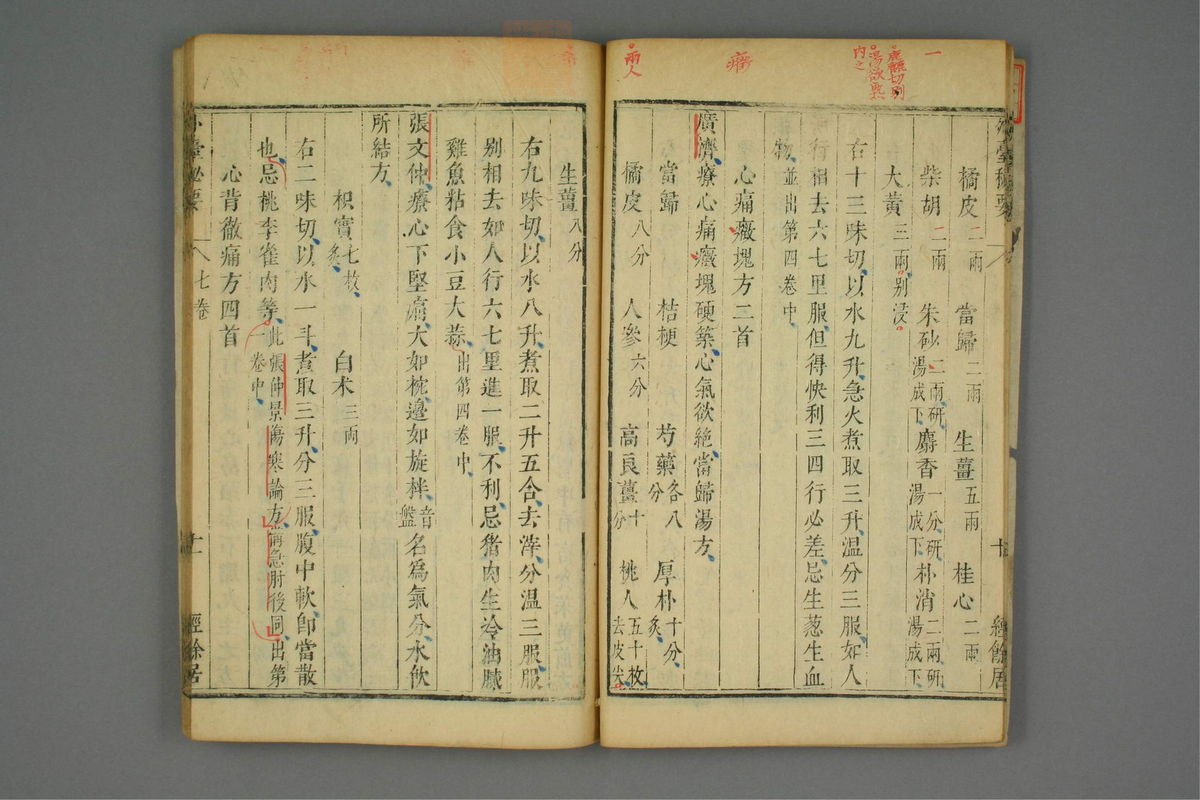 一
鹿髓切別
湯欲熟
内之
癖
兩人
橘皮二兩 當歸二兩 生薑五兩 桂心二兩
柴胡二兩 朱砂二兩研湯成下 麝香一分研湯成下 朴消二兩研湯成下
大黃三兩別浸
右十三味切以水九升急火煮取三升溫分三服如人
行相去六七里服但得快利三四行必差忌生葱生血
物並出第四卷中
心痛癥塊方二首
廣濟療心痛癥塊硬築心氣欲絕當歸湯方
當歸 桔梗 芍藥各八分 厚朴十分炙
橘皮八分 人參六分 高良薑十分 桃人五十枚去皮尖
外臺秘要
十 經餘居
生薑八分
右九味切以水八升煮取二升五合去滓分溫三服服
別相去如人行六七里進一服不利忌猪肉生冷油膩
雞魚粘食小豆大蒜出第四卷中
張文仲療心下堅痛大如椀邊如旋柈音盤名為氣分水飲
所結方
枳實七枚炙 白朮三兩
右二味切以水一斗煮取三升分三服腹中軟卽當散
也忌桃李雀肉等此張仲景傷寒論方備急肘後同出第一卷中
心背徹痛方四首
外臺秘要
七卷
十一 經餘居